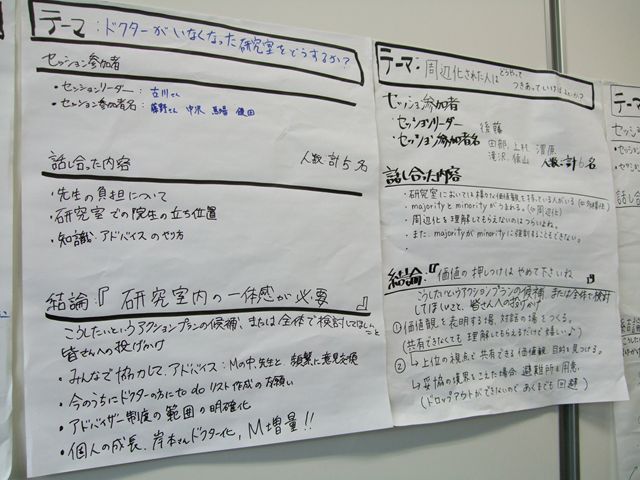 テーマ:ドクターがいなくなった研究室をどうするか?
セッション参加者
・セッションリーダー: 古川さん
・セッション参加者名: 藤野さん 中沢 馬場 俊田
話し合った内容 人数 計5名
・先生の負担について
・研究室での院生の立ち位置
・知識、アドバイスのやり方
結論:『研究室内の一体感が必要』
こうしたいというアクションプランの候補、または全体で検討してほしいこと
皆さんへの投げかけ
・みんなで協力して、アドバイス:Mの中、先生と頻繁に意見交換
・今のうちにドクターの方に to do リスト作成のお願い
・アドバイザー制度の範囲の明確化
・個人の成長、岸本さんドクター化、M増量!!
テーマ:周辺化された人はどうやって
つきあっていけばよいか?
セッション参加者
・セッションリーダー 後藤
・セッション参加者名 田部、上村、
滝沢、 人数:計6名
話し合った内容
・研究室においては様々な価値観を持っている人がいる
・majorityとminorityがうまれる。(⇔周辺化)
・周辺化を理解してもらえないのはつらいよね。
・また、majorityがminorityに強制することもできない。
結論:『価値の押しつけはやめて下さいね』
こうしたいというアクションプランの候補、または全体で検討
してほしいこと、皆さんへの投げかけ
①価値観を表明する場、対話の場をつくる。
(共有できなくても理解してもらえるだけで嬉しい♪)
② →上位の視点で共有できる価値観、目的を見つける。
→妥協の境界をこえた場合、避難所を用意。
(ドロップアウトができないので、あくまでも回避)
テーマ:
セッション参加
・セッショ
・セッショ
話し合
結論